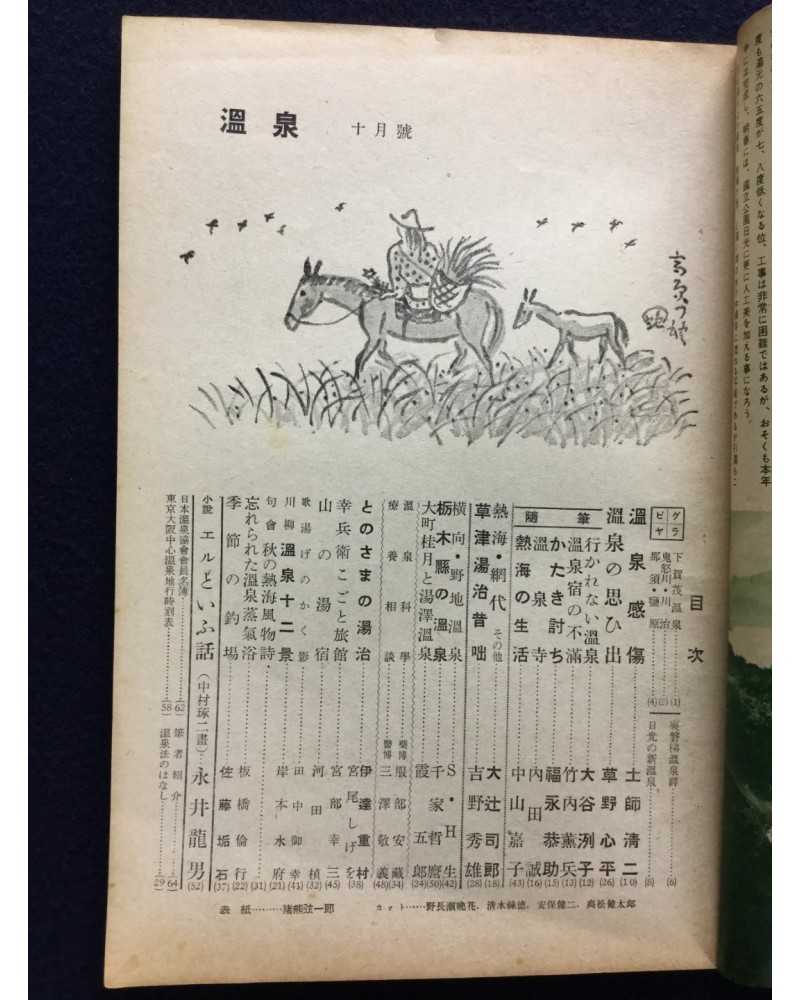 溫泉 十月號
目次
グラビヤ
下賀茂温泉……(1)
鬼怒川・川治……(2)
那須・鹽原……(4)
奥磐梯溫泉譚……(6)
日光の新溫泉……(8)
溫泉感傷……土師淸二(10)
溫泉の思ひ出……草野心平(26)
隨筆
行かれない溫泉……大谷洌子(12)
溫泉宿の不滿……竹内薫兵(13)
かたき討ち……福永恭助(15)
溫泉寺……内田誠(16)
熱海の生活……中山嘉子(43)
熱海・網代その他……大辻司郎(18)
草津湯治昔咄……吉野秀雄(28)
橫向・野地溫泉……S・H生(42)
栃木縣の溫泉……千家哲麿(50)
大町桂月と湯澤溫泉……霞五郎(24)
溫泉科學……藥博 服部安藏(34)
療養相談……醫博 三澤敬義(48)
とのさまの湯治……伊達重村(38)
幸兵衛こごと旅館……宮尾しげを
山の湯宿……宮部幸三(45)
歌 湯げのかく影……河田楨(32)
川柳 溫泉十二景……田中御幸(41)
句會 秋の熱海風物詩……岸本水府(21)
忘れられた溫泉蒸氣浴……板橋倫行(22)
季節の釣場……佐藤垢石(37)
小說 エルといふ話(中村琢二畫)……永井龍男(52)
日本溫泉協會會員名簿……62
東京大阪中心溫泉地行時刻表……58
筆者紹介……64
溫泉法のはなし……29
表紙………猪熊弦一郎
カット……野長瀬晩花、清水錬德、安保健二、高松健太郎
度も湯元の六五度が七、八度低くなる位、工事は非常に困難ではあるが、おそくも本年
中には完成し、明春には、國立公園日光に更に人工美を加える事になろう。